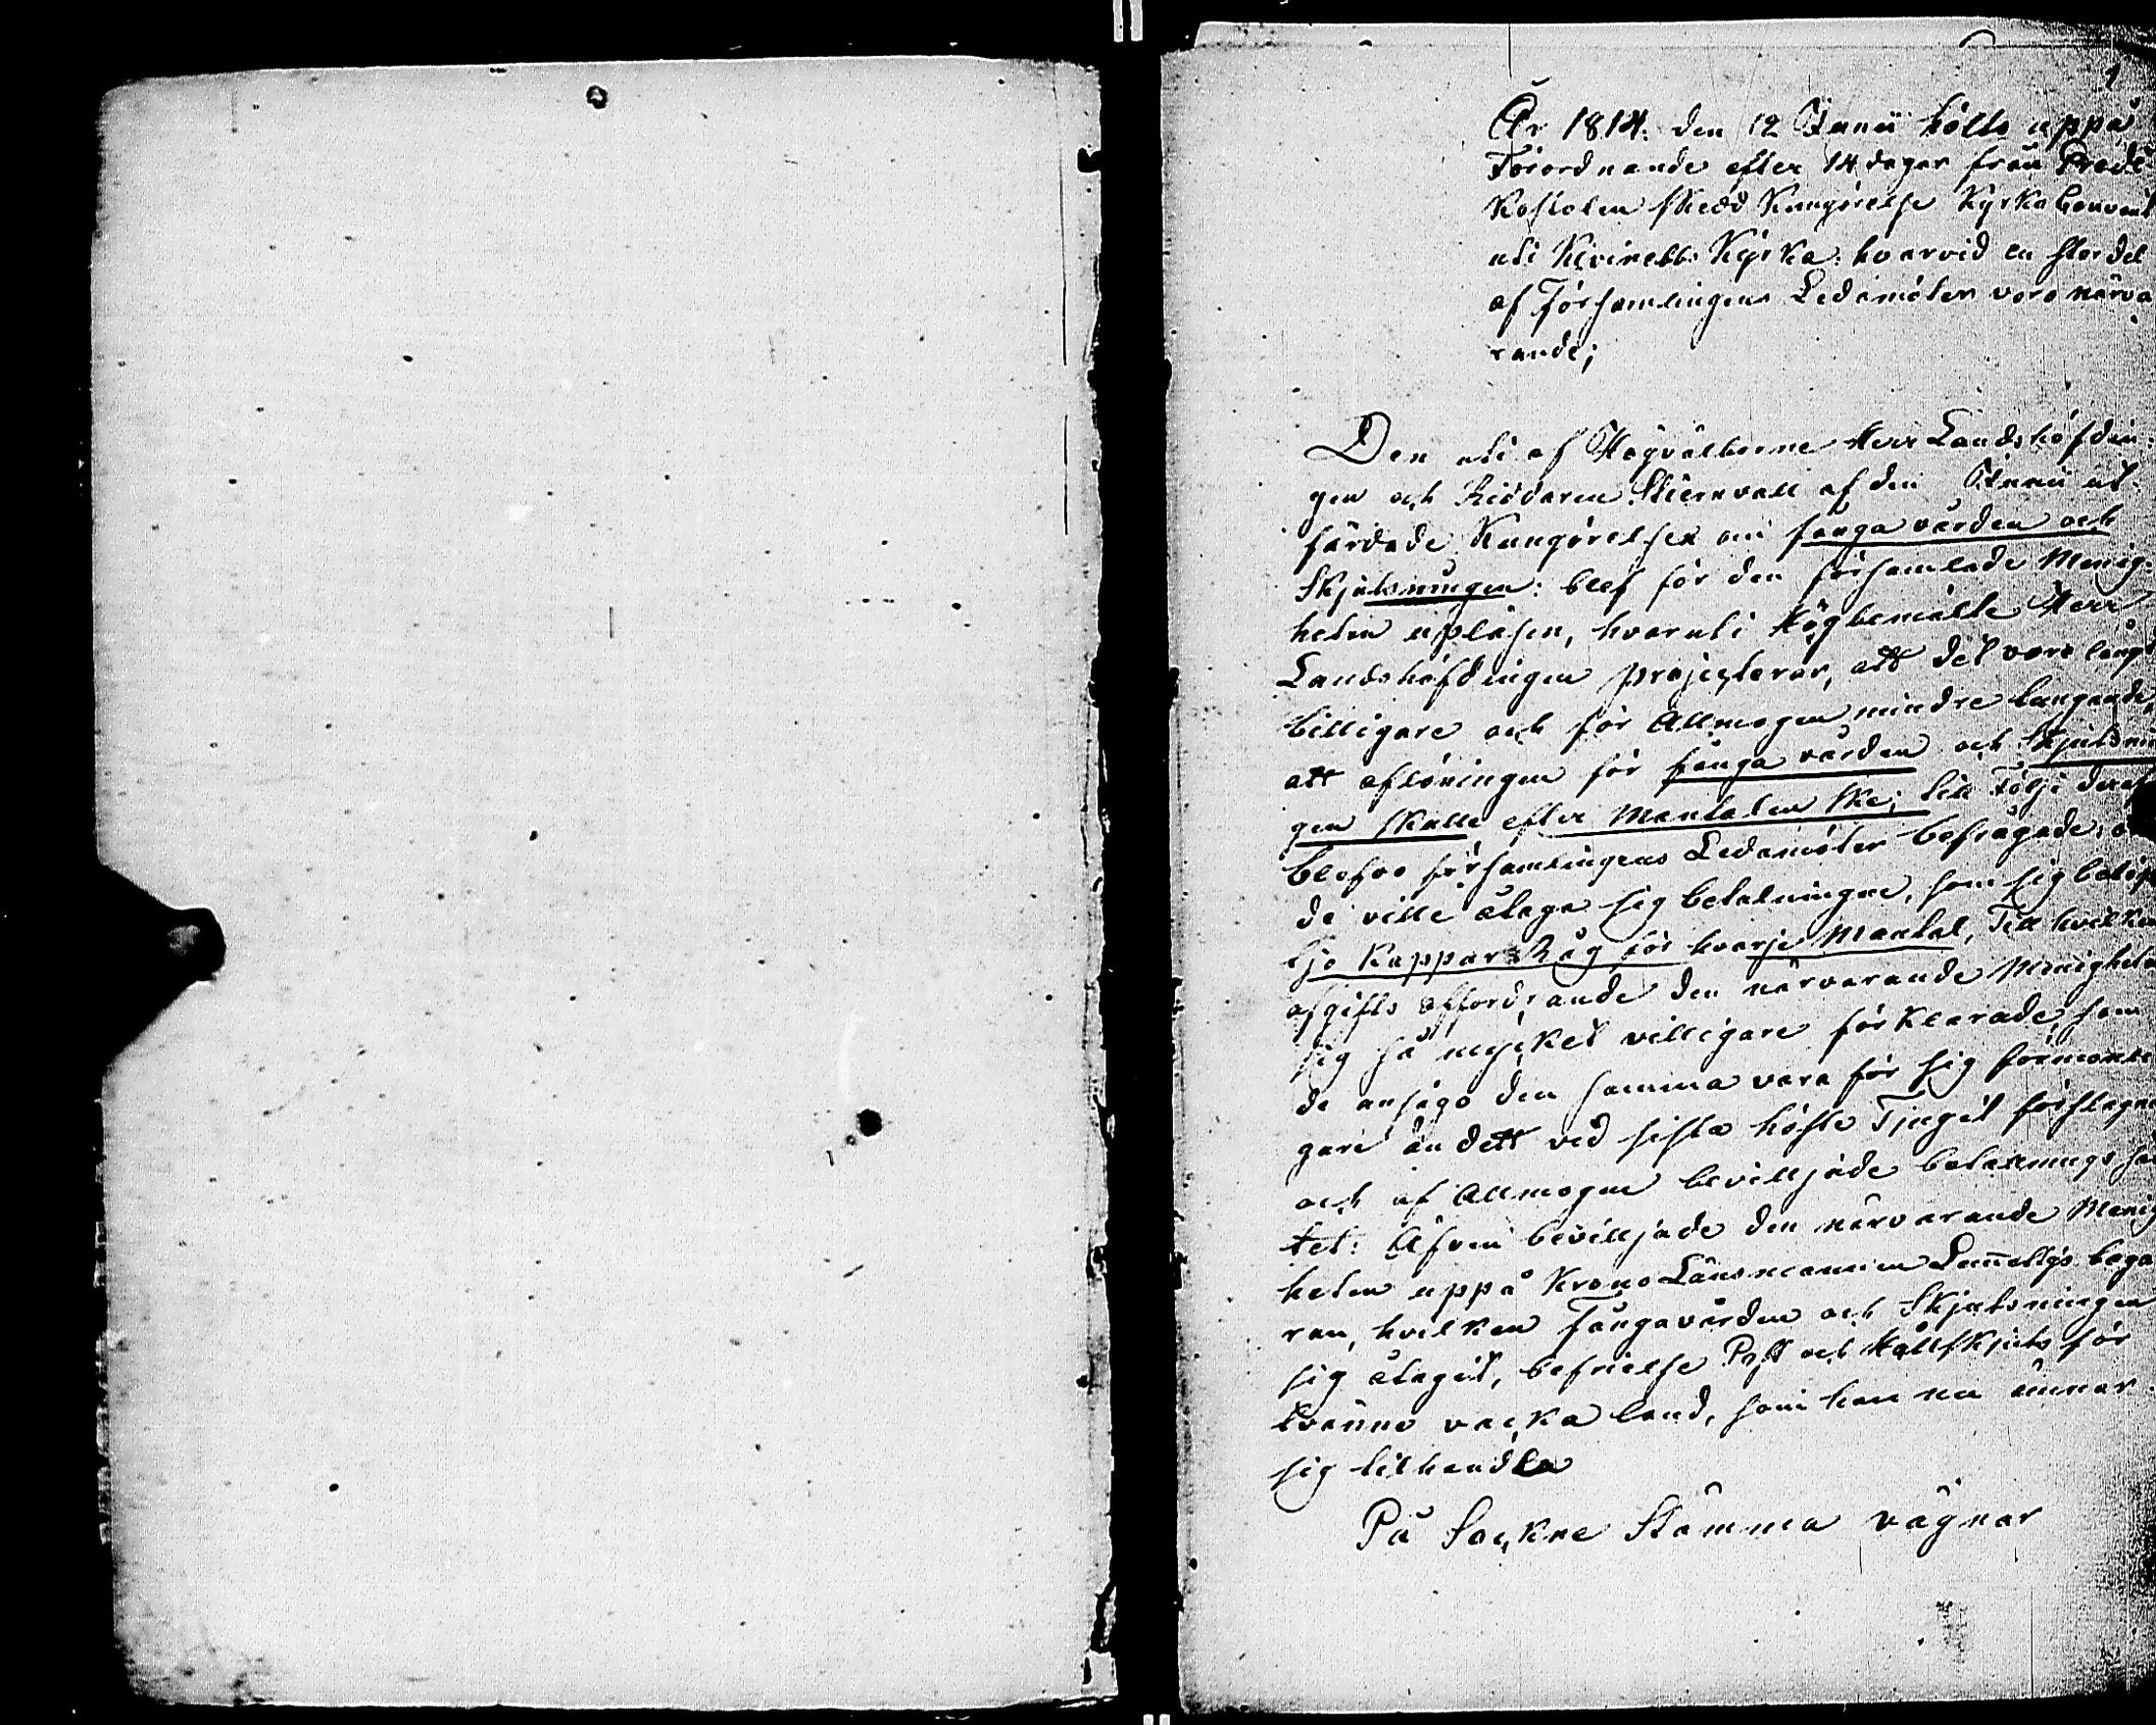 1
År 1814. den 12 Junii hölts uppå
Förordnande efter 14 dagar från Predi
kostolen skedd Kungörelse Kyrko Convent
uti Kivinebb Kyrka: hvarvid en stor del
af Församlingens Ledamöter voro närva
rande;
Den uti af Högvälborne Herr Landshöfdin
gen och Riddaren Stiernvall af den Junii ut
färdade Kungörelsen om fånga vården och
Skjutsningen: blef för den församlade Menig:
heten upläsen, hvaruti Högbemälte Herr
Landshöfdingen projecterar, att det vore långt
billigare och för Allmogen mindre tungande,
att aflöningen för fånga vården och Skjutsnin
gen skulle efter Mantalen ske; till Följe deraf
blefvo församlingens Ledamöter befrågade: om
de ville åtaga sig betalningen, som sig belöp
tjo Kappar Råg för hvarje Mantal, Till hvilken
afgifts affordrande den närvarande Menigheten
sig så mycket villigare förklarade, som
de ansågo den samma vara för sig förmonli
gare än dett vid sista höste Tinget föreslagne
och af Allmogen bevilljade betalnings sat
tet: Äfven bevilljade den närvarande Menig
heten uppå Krono Länsmannen Lennelys bega
ran, hvilken Fångavården och Skjutsningen
sig åtagit, befrielse Post och Hållskjuts för
tvänne vacka land, som han nu ämnar
sig tilhandla
På Sockne Stämma vägnar